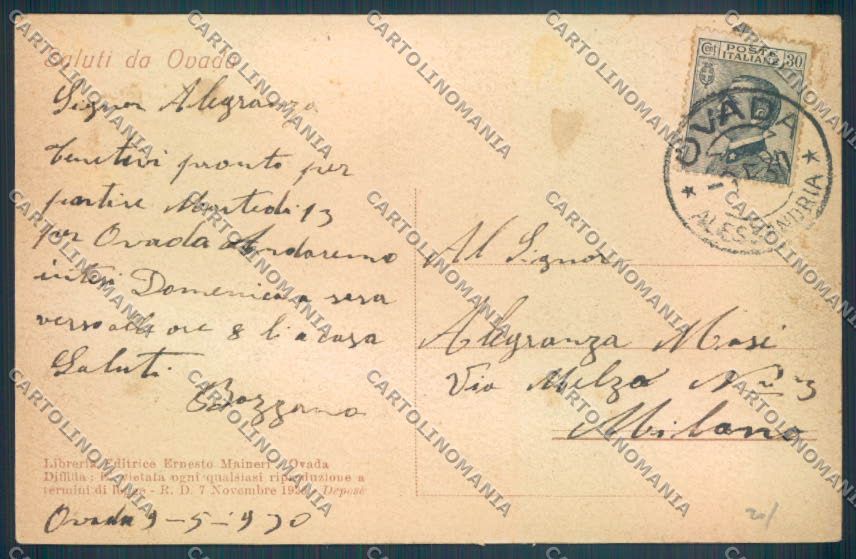 Saluti da Ovada
Signor Alegranza
Tenetevi pronto per
partire Martedi 13
per Ovada Andaremo
intesi Domenica a sera
verso alle ore 8 li a casa
Saluti
Bozzano
Libreria Editrice Ernesto Maineri - Ovada
Diffida: È vietata ogni qualsiasi riproduzione a
termini di legge - R. D. 7 Novembre 192 - Deposé
Ovada 9-5-930
Cent. POSTE 30
ITALIANE
OVADA
ALESSANDRIA
Al Signor
Alegranza Mosi
Via Melzo N° 3
Milano
20/
CARTOLINOMANIA